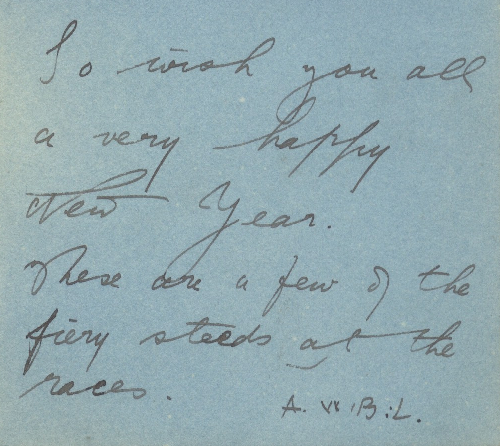 To wish you all
a very happy
New Year.
These are a few of the
fiery steeds at the
races.
A. W. B. L.